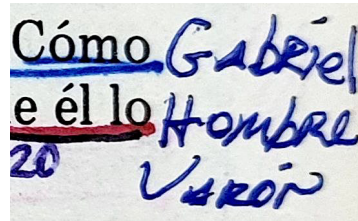 Cómo Gabriel
e él lo Hombre
20 Varón